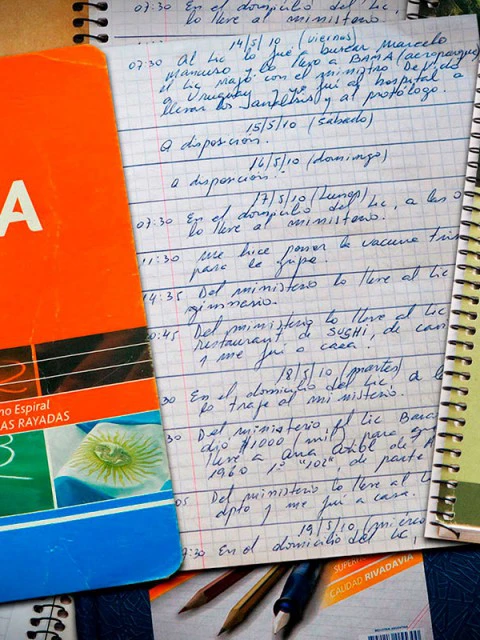 07:30 En el domicilio del Lic.
lo llevé al ministerio.
14/5/10 (viernes)
07:30 Al Lic lo fué a buscar Marcelo
y lo llevo a BAMA (aeroparque)
el Lic viajó con el ministro De Vido
a Uruguay y yo fui al hospital a
llevar los analisis y al protólogo.
15/5/10 (sabado)
a disposicion.
16/5/10 (domingo)
a disposicion.
17/5/10 (lunes)
07:30 En el domicilio del Lic, a las
lo llevé al ministerio.
11:30 me hice poner la vacuna
para la gripe.
14:35 Del ministerio lo llevé al Lic
gimnasio.
0:45 Del ministerio lo llevé al Lic
restaurant de SUSHI, de
y me fui a casa.
18/5/10 (martes)
30 En el domicilio del Lic, a
lo traje al ministerio.
30 Del ministerio, el Lic
dió $1000 (mil) para
llevé a
1960 1º "102", de parte
05 Del ministerio lo llevé al
dpto y me fui a casa.
19/5/10
7:30 En el domicilio del Lic,
A
no Espiral
AS RAYADAS
CALIDAD RIVADAVIA